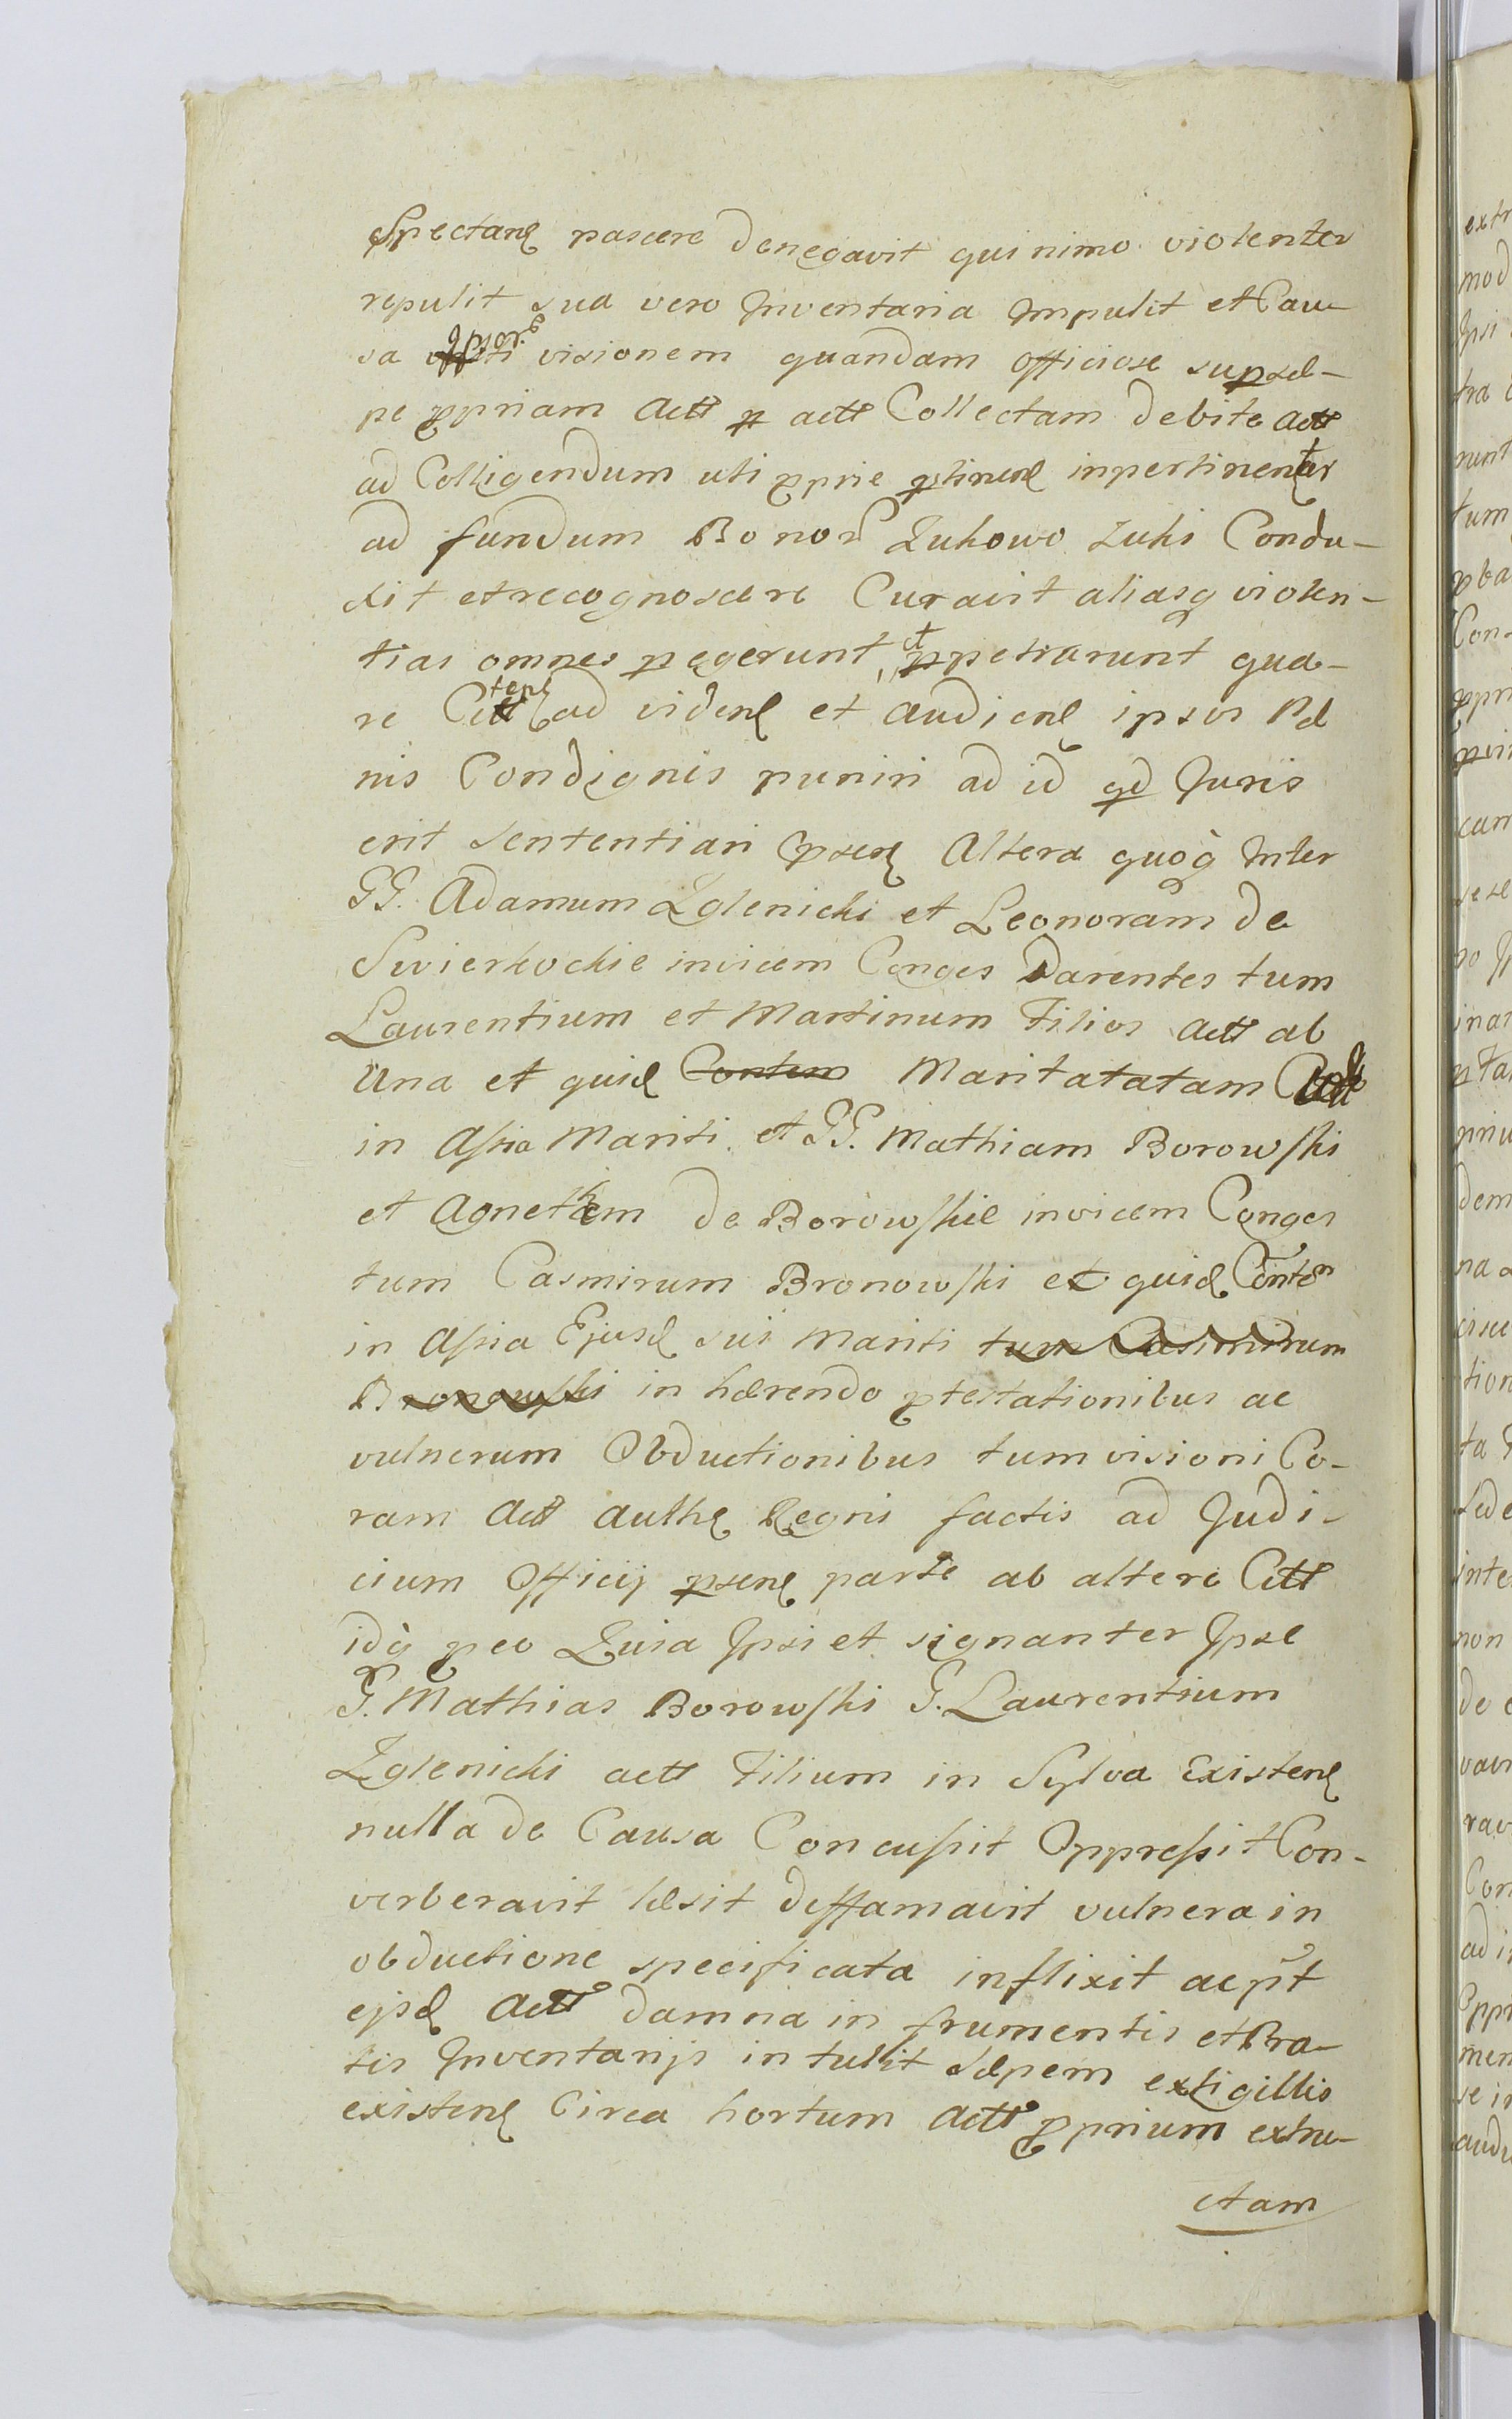 Spectan pascere denegavit quinimo violenter
repulit sua vero Inventaria Impulit et Cau-
sa Ipsor visionem quandam officiose sup sæ-
pe ppriam Actt p actt Collectam debite actt
ad Colligendum uti pprie ptinen inpertinenter
ad fundum Bonor Zukowo Zuki Condu-
xit et recognoscere Curavit aliasq violen-
tias omnes pegerunt, et ppetrarunt qua-
re Citt ad viden et audien ipsos Pæ
nis Condignis puniri ad id qd Juris
erit sententiari psen Altera quoq Inter
GG. Adamum Zglenicki et Leonoram de
Swierkockie invicem Conges Parentes tum
Laurentium et Martinum Filios Actt ab
Una et quid Conten Maritatatam
in Assia Mariti et GG. Mathiam Borowski
et Agnethem de Borowskie invicem Conges
tum Casmirum Bronowski et quid Conten
in Assia Ejusd sui Mariti tum Casimirum
Bronowski in hærendo ptestationibus ac
vulnerum Obductionibus tum visioni Co-
ram Act Authen Regni factis ad Judi-
cium Officij psen parte ab altere Citt
idq peo Quia Ipsi et signanter Ipse
G. Mathias Borowski G. Laurentium
Zglenicki actt Filium in Sylva Existen
nulla de Causa Concussit Oppressit Con-
verberavit læsit deffamavit vulnera in
obductione specificata inflixit ac pt
ejsd Actt damna in frumentis et Pra-
tis Inventarijs intulit Sæpem ex ligillis
existen Circa hortum Actt pprium extru-
ctam